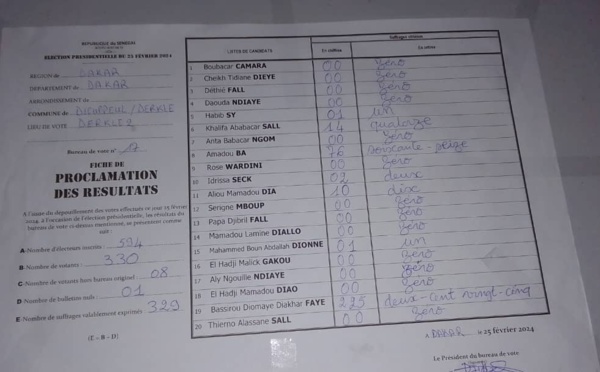 REPUBLIQUE DU SENEGAL
ELECTION PRESIDENTIELLE DU 25 FÉVRIER 2024
REGION DE DAKAR
DÉPARTEMENT DE DAKAR
ARRONDISSEMENT DE
COMMUNE DE DIEUPPEUL/DERKLE
LIEU DE VOTE DERKLE2
Bureau de vote n° 17
FICHE DE
PROCLAMATION
DES RESULTATS
A l'issue du dépouillement des votes effectués ce jour 25 février
2024, à l'occasion de l'élection présidentielle, les résultats du
bureau de vote ci-dessus mentionné, se présentent comme
suit :
A-Nombre d'électeurs inscrits : 594
B-Nombre de votants : 330
C-Nombre de votants hors bureau originel : 08
D-Nombre de bulletins nuls : 01
E-Nombre de suffrages valablement exprimés : 329
(E = B - D)
Suffrages obtenus
LISTES DE CANDIDATS En chiffres En lettres
1 Boubacar CAMARA 00 Zéro
2 Cheikh Tidiane DIEYE 00 Zéro
3 Déthié FALL 00 Zéro
4 Daouda NDIAYE 00 Zéro
5 Habib SY 01 un
6 Khalifa Ababacar SALL 14 quatorze
7 Anta Babacar NGOM 00 Zéro
8 Amadou BA 76 Soixante-seize
9 Rose WARDINI 00 Zéro
10 Idrissa SECK 02 deux
11 Aliou Mamadou DIA 10 dix
12 Serigne MBOUP 00 Zéro
13 Papa Djibril FALL 00 Zéro
14 Mamadou Lamine DIALLO 00 Zéro
15 Mahammed Boun Abdallah DIONNE 01 un
16 El Hadji Malick GAKOU 00 Zéro
17 Aly Ngouille NDIAYE 00 Zéro
18 El Hadji Mamadou DIAO 00 Zéro
19 Bassirou Diomaye Diakhar FAYE 225 deux-cent vingt-cinq
20 Thierno Alassane SALL 00 Zéro
A DAKAR, le 25 février 2024
Le Président du bureau de vote